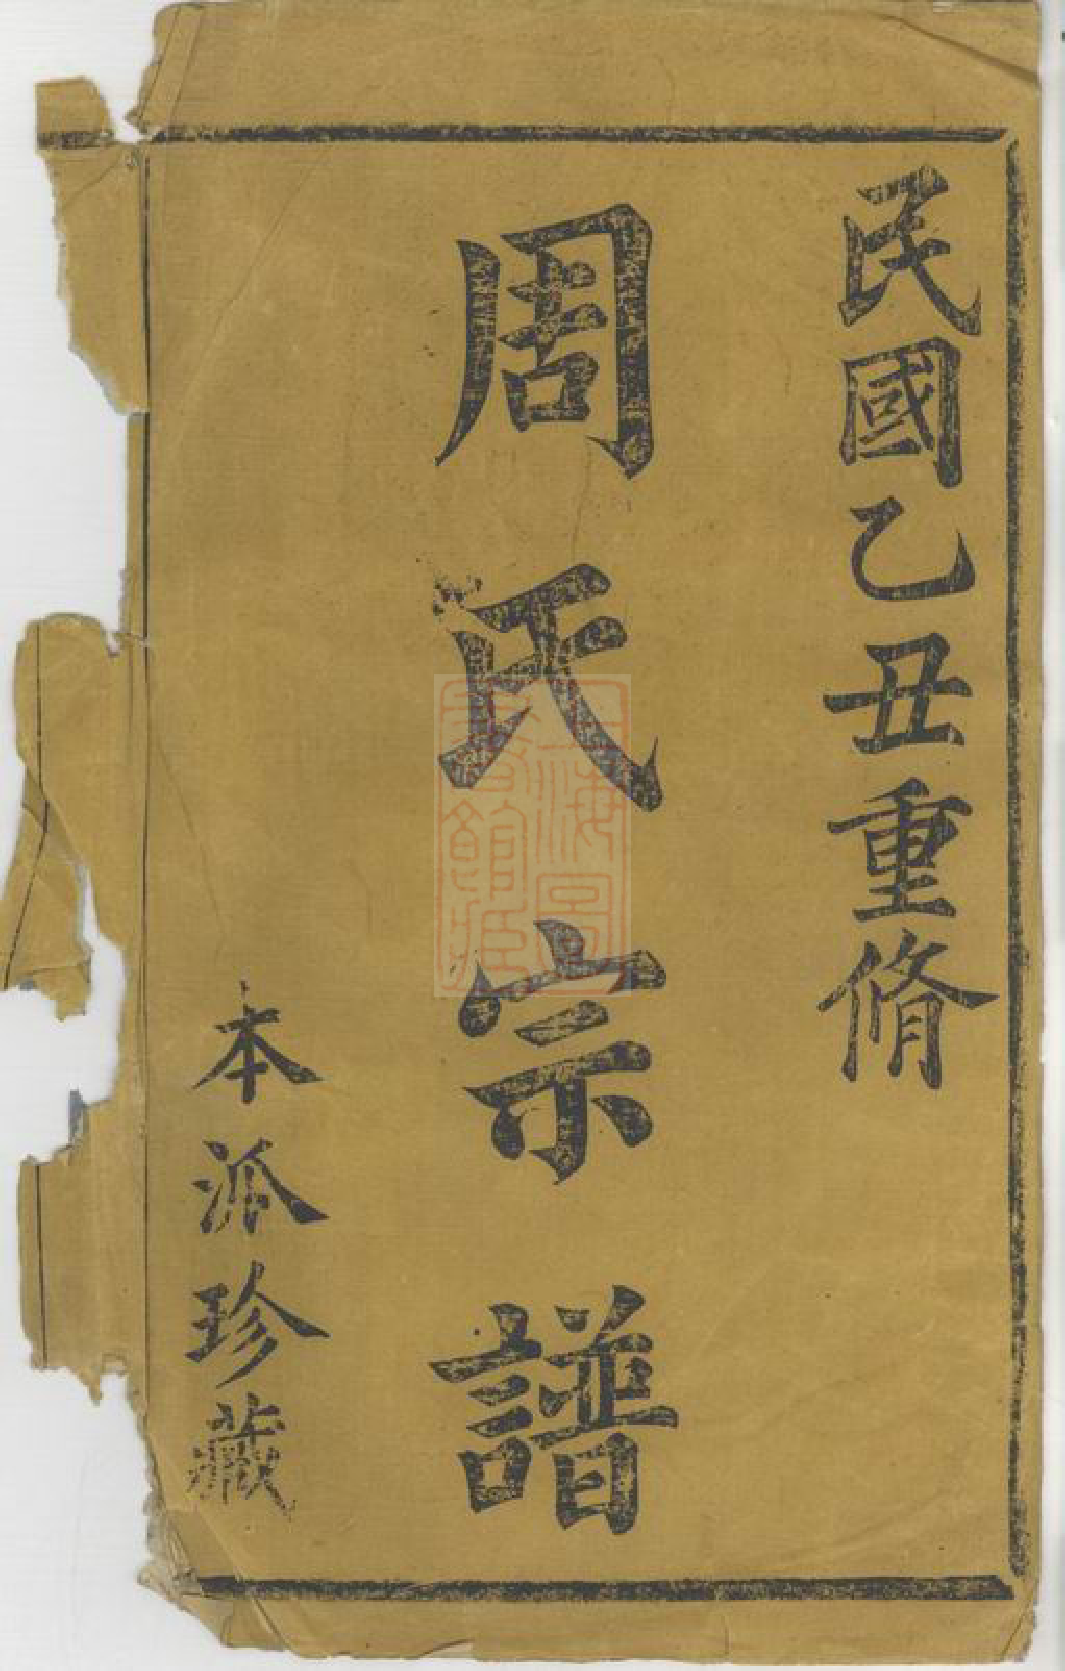 民國乙丑重脩
周氏宗譜
本派珍藏
上海圖書館藏